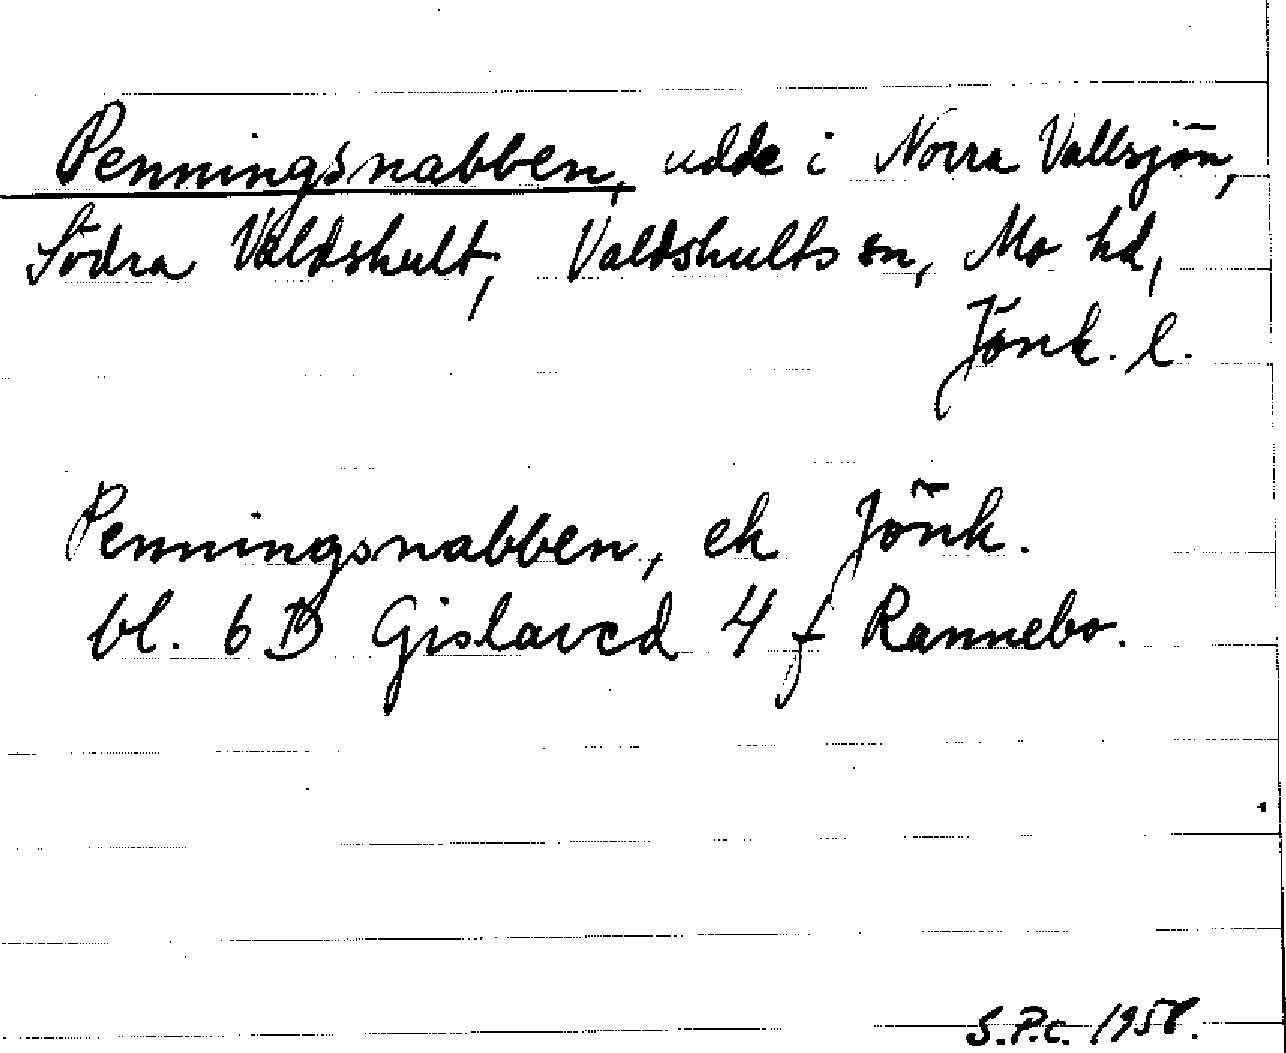 Penningsnabben, udde i Norra Vallsjön,
Södra Valdshult, Valdshults sn, Mo hd,
Jönk. l.
Penningsnabben, ek Jönk.
bl. 6 D Gislaved 4 f Rannebo.
S.P.c. 1958.